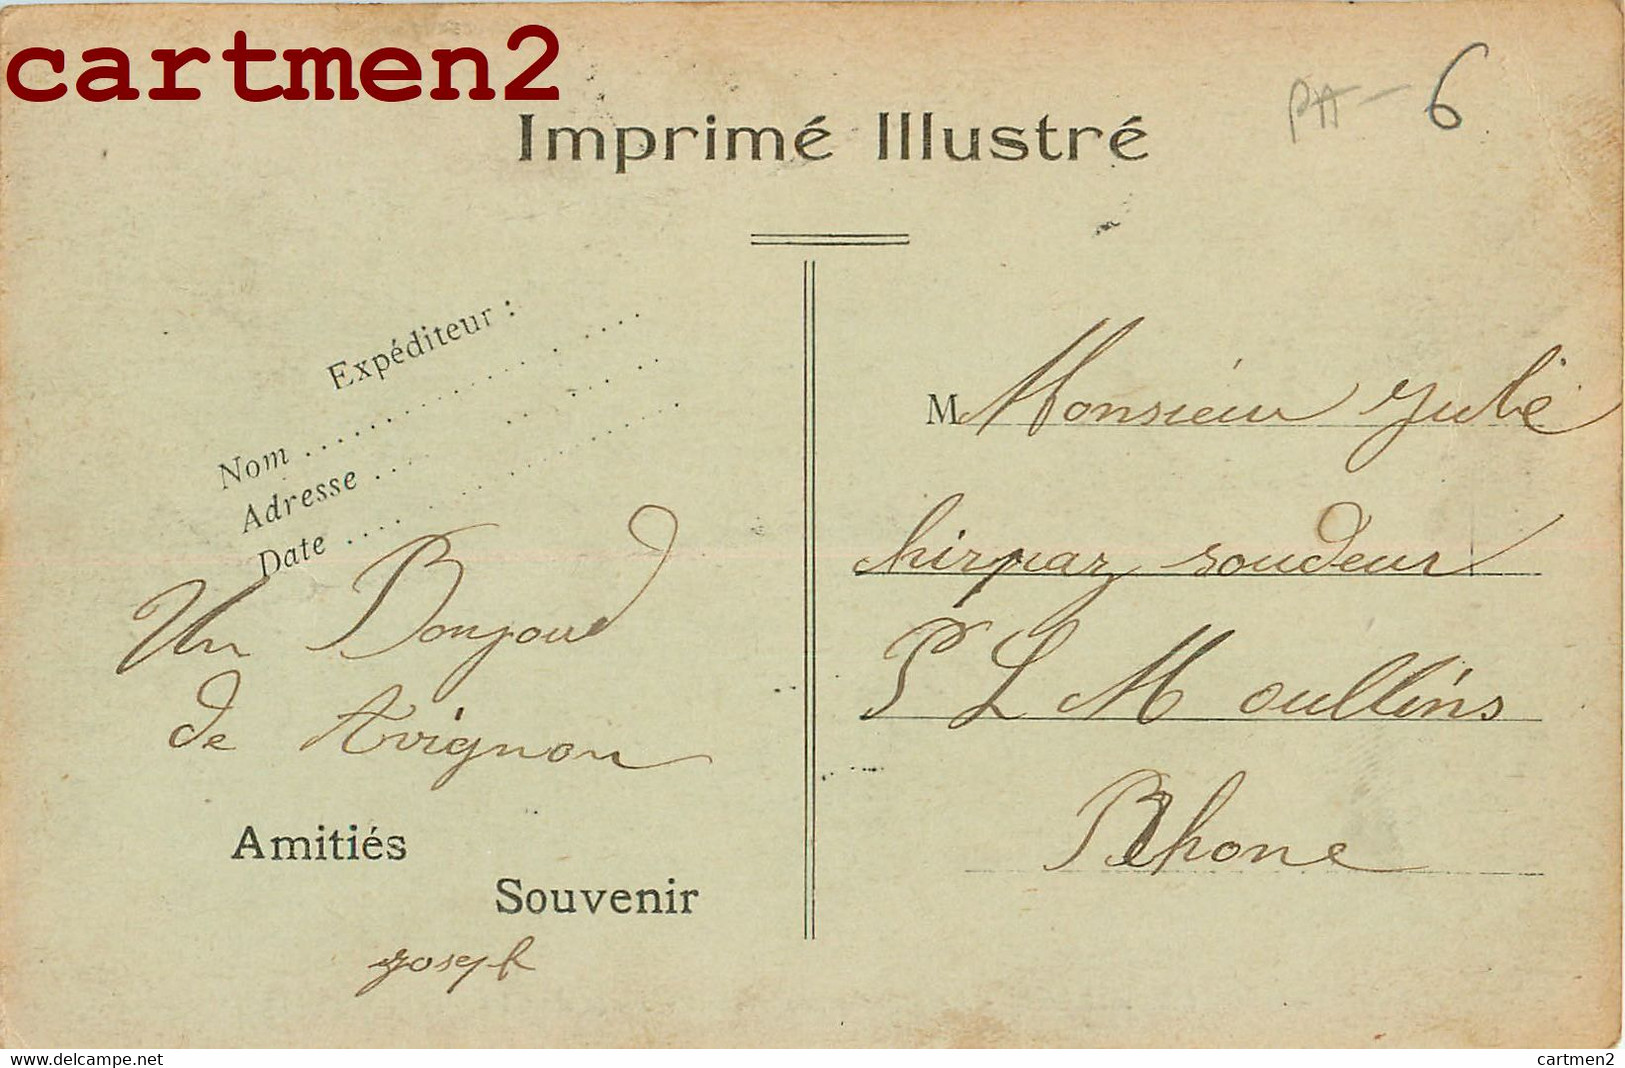 cartmen2
PA - 6
Imprimé Illustré
Expéditeur :
Nom
Adresse
Date
Un Bonjour
de Avignon
Amitiés
Souvenir
Joseph
M Monsieur Julie
soudeur
P L M oullins
Rhone
delcampe.net
cartmen2